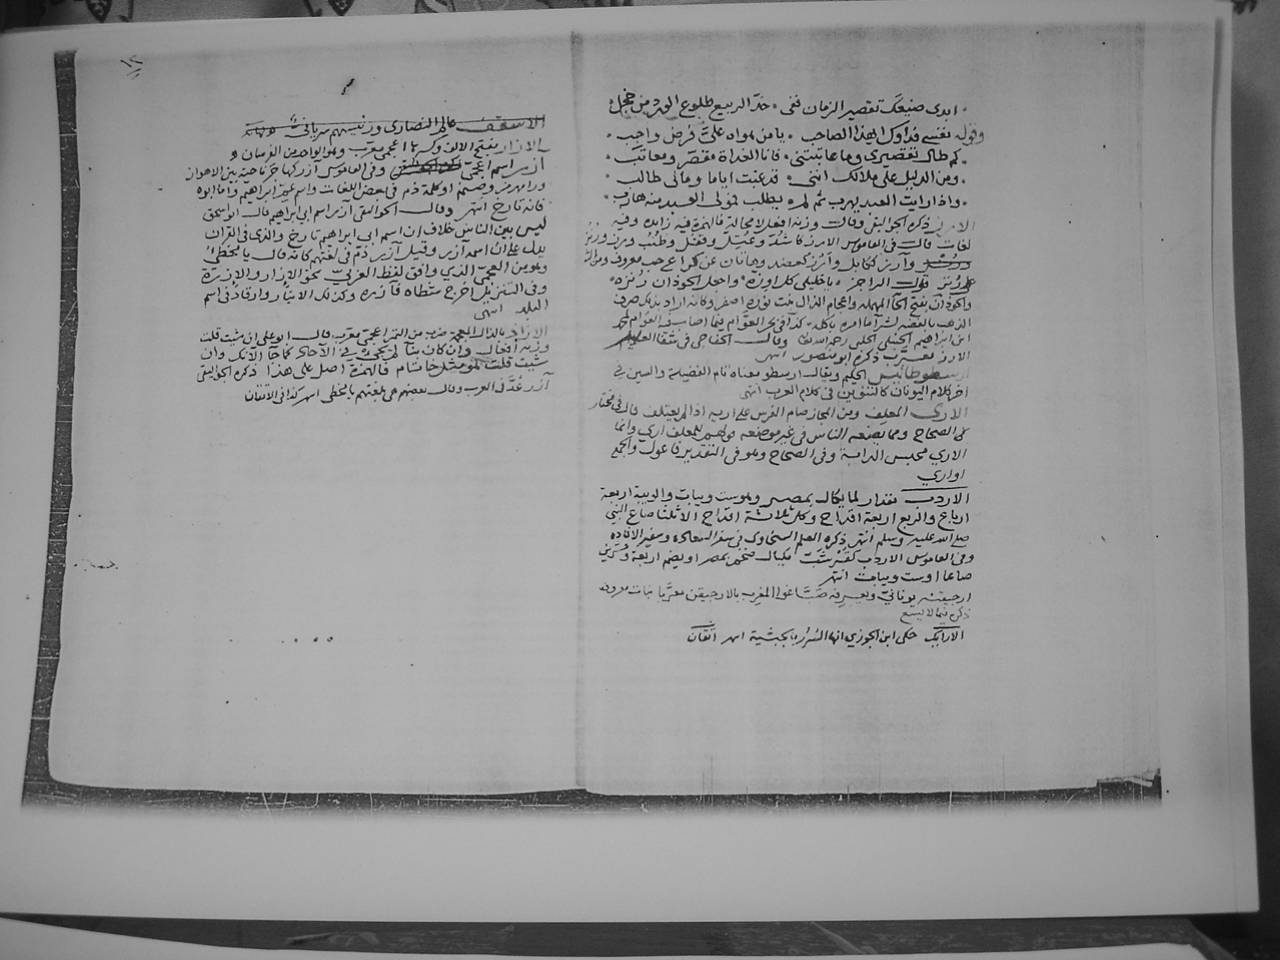 ابدى صنيعك تقصير الزمان ففى * خد الربيع طلوع الورد من خجل
وقوله بنفسى فداوك ايهذا الصاحب * يا من هواه علىّ فرض واجب *
كم طال تقصيرى وما عاتبتنى * فانا الغداة مقصر ومعاتب *
ومن الدليل على ملالك اننى * قد غبت اياما ومالى طالب
واذا رايت العبد يهرب ثم لم * يطلب فمولى العبد منه هارب
ذكره الجواليقى وقال وزنه افعل لا محالة فالهمزة فيه زائدة وفيه
لغات قال فى القاموس الارز كاشد وعتل وقفل وطنب ورز ورنز
وآرز ككابل وأرز كعضد وهاتان عن كراع حب معروف
قول الراجز * يا خليلى كل اوزه * واجعل الجوذان رنزه *
والجوذان بفتح الحا المهملة واعجام الذال نبت نوره اصفر وكانه اراد بذلك صرف
الذهب بالفضة لشرا ما امره باكله كذا فى بحر العوام فيما اصاب فيه العوام لمحمد
ابن ابراهيم الحنبلى الحلبى رحمه الله تعالى وقال الخفاجى فى شفا الغليل
الارز معرب ذكره ابو منصور انتهى
ارسطوطاليس الحكيم ويقال ارسطو معناه تام الفضيلة والسين فى
اخر كلام اليونان كالتنوين فى كلام العرب انتهى
الارى المعلف ومن المجاز صام الفرس على اريه اذا لم يعتلف قال فى مختار
الصحاح ومما يضعه الناس فى غير موضعه قولهم للمعلف ارى وانما
الارى محبس الدابة وفى الصحاح وهو فى التقدير فاعول والجمع
اوارى
الاردب مقدار لما يكال بمصر وهو ست ويبات والويبة اربعة
ارباع والربع اربعة اقداح وكل ثلاثة اقداح الا ثلثا صاع النبى
صلى الله عليه وسلم انتهى ذكره العلم السخاوى فى سفر السعادة وسفير الافادة
وفى القاموس الاردب كقرشب مكيال ضخم بمصر او يضم اربعة وعشرين
صاعا او ست ويبات انتهى
ارجيقنه يونانى ويعرفه صباغوا المغرب بالارجيقن معربا نبات معروف
ذكره فيما لا يسع
الارايك حكى ابن الجوزى انها السرر بالحبشية انتهى اتقان
الاسقف عالى النصارى ورئيسهم سريانى
الازار بفتح الالف
آزر اسم اعجمى وفى القاموس آزر كهاجر ناحية بين الاهواز
ورامهرمز وصنم او كلمة ذم فى بعض اللغات واسم عم ابراهيم واما ابوه
فانه تارخ انتهى وقال الجواليقى آزر اسم ابى ابراهيم قال ابو اسحق
ليس بين الناس خلاف ان اسم ابى ابراهيم تارخ والذى فى القران
يدل على ان اسمه آزر وقيل آزر ذم فى لغتهم كانه قال يا مخطئ
وهو من العجمى الذى وافق لفظ العربى نحو الازار والازرة
وفى التنزيل اخرج شطاه فآزره وكذلك الابار وارفاد فى اسم
البلد انتهى
الازاذ بالذال المعجمة ضرب من التمر اعجمى معرب قال ابو على ان شيت قلت
وزنه افعال وان كان بنا لم يجئ فى الآحاد كما جا الآنك وان
شيت قلت هو مثل خاتام فالهمزة اصل على هذا ذكره الجواليقى
آزر عُدَّ فى المعرب وقال بعضهم هى بلغتهم يا مخطى انتهى كذا فى الاتقان